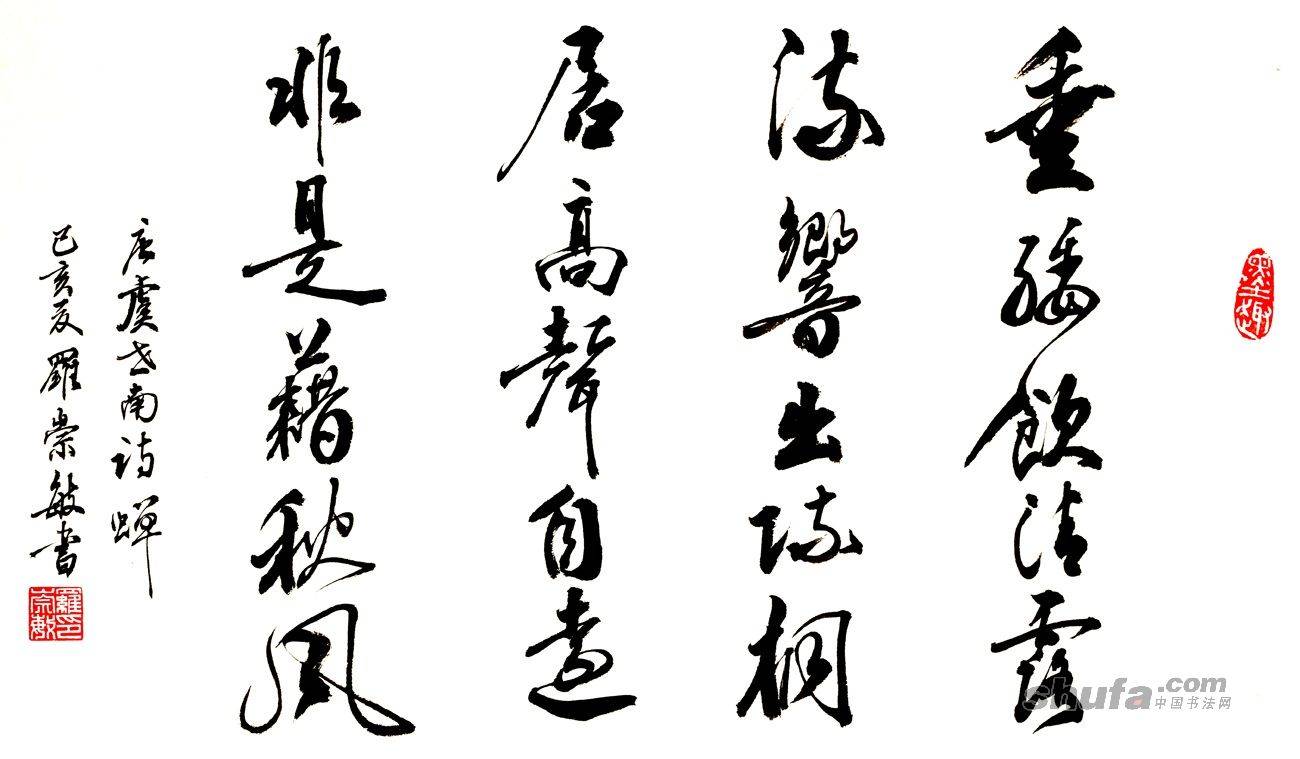 垂緌飲清露
流響出疏桐
居高聲自遠
非是藉秋風
唐虞世南詩蟬
己亥夏羅崇敏書
墨趣
羅崇敏印
shufa.com
中国书法网